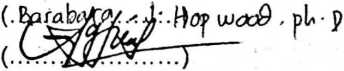 (.Barabara...J. Hopwood. ph. D
(....................)